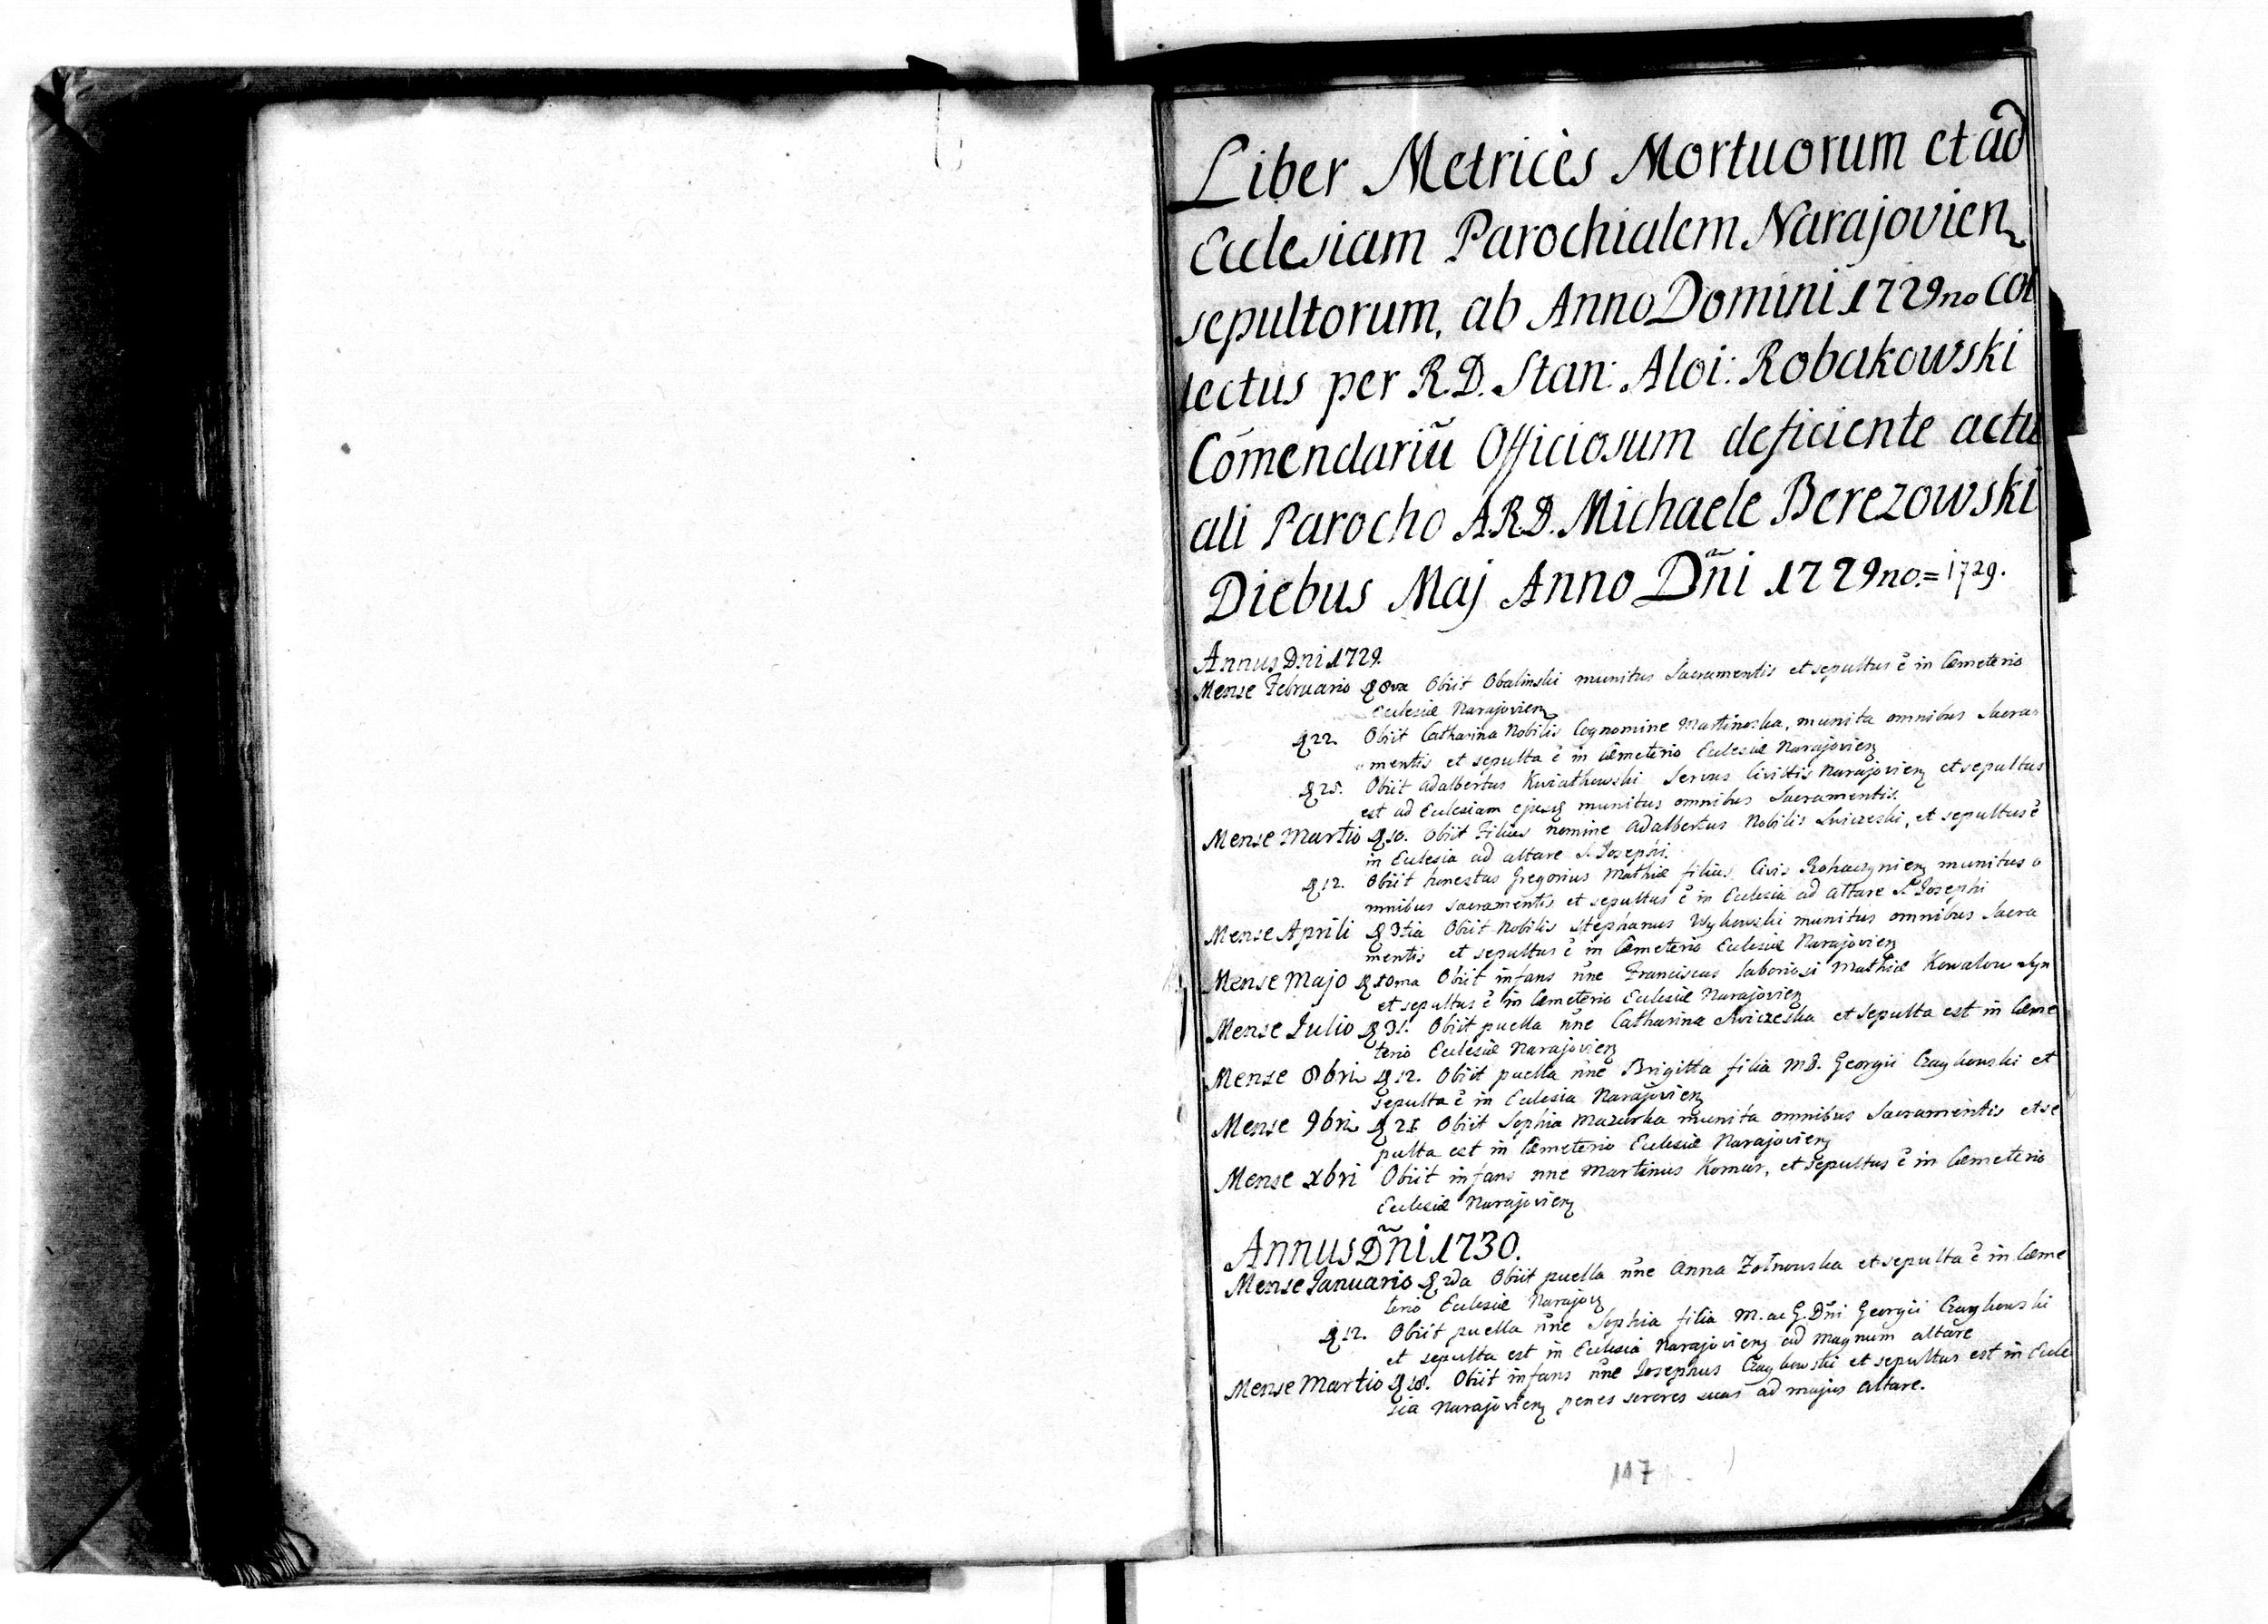 Liber Metricès Mortuorum et ad
Ecclesiam Parochialem Narajovien
sepultorum, ab Anno Domini 1729no col
lectus per R.D. Stan: Aloi: Robakowski
Comendariũ Officiosum deficiente actu
ali Parocho A.R.D. Michaele Berezowski
Diebus Maj Anno Dñi 1729no.= 1729.
Annus Dni 1729.
Mense Februario 8va Obiit Obalinski munitus Sacramentis et sepultus ẽ in Cæmeterio
Ecclesiæ Narajovien
22. Obiit Catharina Nobilis Cognomine Martinoska, munita omnibus Sacra
mentis et sepulta ẽ in Cæmeterio Ecclesiæ Narajovien
25. Obiit Adalbertus Kwiatkowski Servus Civittis Narajovien et sepultus
est ad Ecclesiam ejusq munitus omnibus Sacramentis.
Mense Martio 10. Obiit Filius nomine Adalbertus Nobilis et sepultus ẽ
in Eclesia ad altare S. Josephi.
12. Obiit honestus Gregorius Mathiæ filius Civis Rohaczynien munitus o
mnibus sacramentis et sepultus ẽ in Eclesia ad altare S. Josephi
Mense Aprili 3tia Obiit Nobilis Stephanus Wykowski munitus omnibus Sacra
mentis et sepultus ẽ in Cæmeterio Ecclesiæ Narajovien
Mense Majo 10ma Obiit infans ñne Franciscus laboriosi Mathiæ Kowalow Syn
et sepultus ẽ in Cæmeterio Ecclesiæ Narajovien
Mense Julio 31. Obiit puella ñne Catharina et sepulta est in Cæme
terio Ecclesiæ Narajovien
Mense 8bri 12. Obiit puella ñne Brigitta filia MD. Georgii Czaykowski et
sepulta ẽ in Eclesia Narajovien
Mense 9bri 21. Obiit Sophia Mazurka munita omnibus Sacramentis et se
pulta est in Cæmeterio Ecclesiæ Narajovien
Mense xbri Obiit infans nne Martinus Komar, et sepultus ẽ in Cæmeterio
Ecclesiæ Narajovien
Annus Dñi 1730.
Mense Januario 2da Obiit puella ñne Anna Żołnowska et sepulta ẽ in Cæme
terio Ecclesiæ Narajov
12. Obiit puella ñne Sophia filia M. ac G. Dñi Georgii Czaykowski
et sepulta est in Eclesia Narajovien ad Magnum altare
Mense Martio 18. Obiit infans ñne Josephus Czaykowski et sepultus est in Ecle
sia Narajovien penes sorores suas ad majus altare.
117